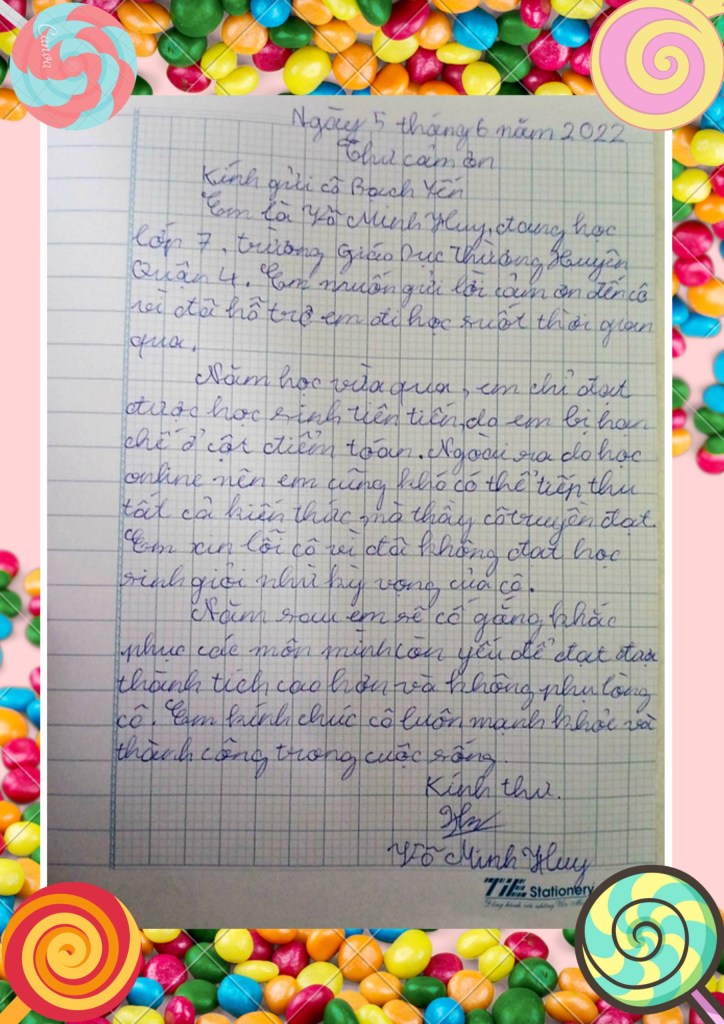 Ngày 5 tháng 6 năm 2022
Thư cảm ơn
Kính gửi cô Bạch Yến
Em là Võ Minh Huy, đang học
lớp 7. trường Giáo Dục Thường Xuyên
Quận 4. Em muốn gửi lời cảm ơn đến cô
vì đã hỗ trợ em đi học suốt thời gian
qua.
Năm học vừa qua, em chỉ đạt
được học sinh tiên tiến, do em bị hạn
chế ở cột điểm toán. Ngoài ra do học
online nên em cũng khó có thể tiếp thu
tất cả kiến thức mà thầy cô truyền đạt.
Em xin lỗi cô vì đã không đạt học
sinh giỏi như kỳ vọng của cô.
Năm sau em sẽ cố gắng khắc
phục các môn mình còn yếu để đạt
thành tích cao hơn và không phụ lòng
cô. Em kính chúc cô luôn mạnh khỏe và
thành công trong cuộc sống.
Kính thư.
Võ Minh Huy
TiE Stationery
Canva